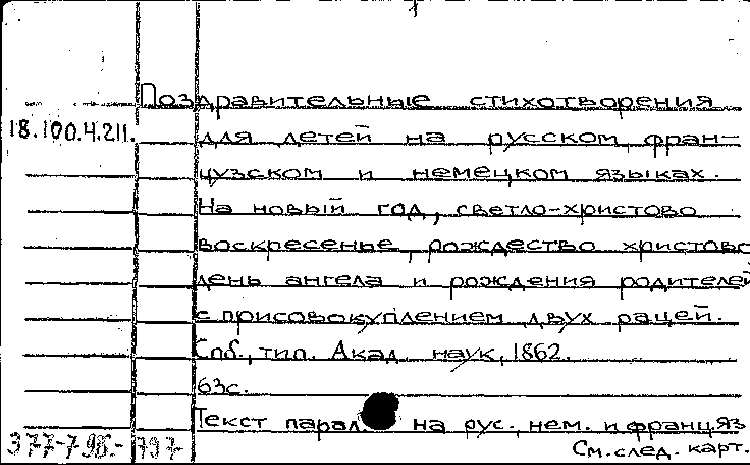 1
Поздравительные стихотворения
18.100.4.211.
для детей на русском, фран-
цузском и немецком языках.
На новый год, светло-христово
воскресенье, рождество христово
день ангела и рождения родителей
с присовокуплением двух рацей.
Спб., тип. Акад. наук, 1862.
63с.
Текст парал на рус., нем. и франц.яз
377-798.- 797-
См.след. карт.